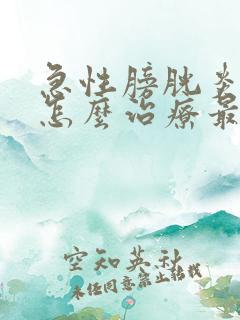 急性膀胱炎
怎麼治療最
空知英秋
未經同意禁止轉載